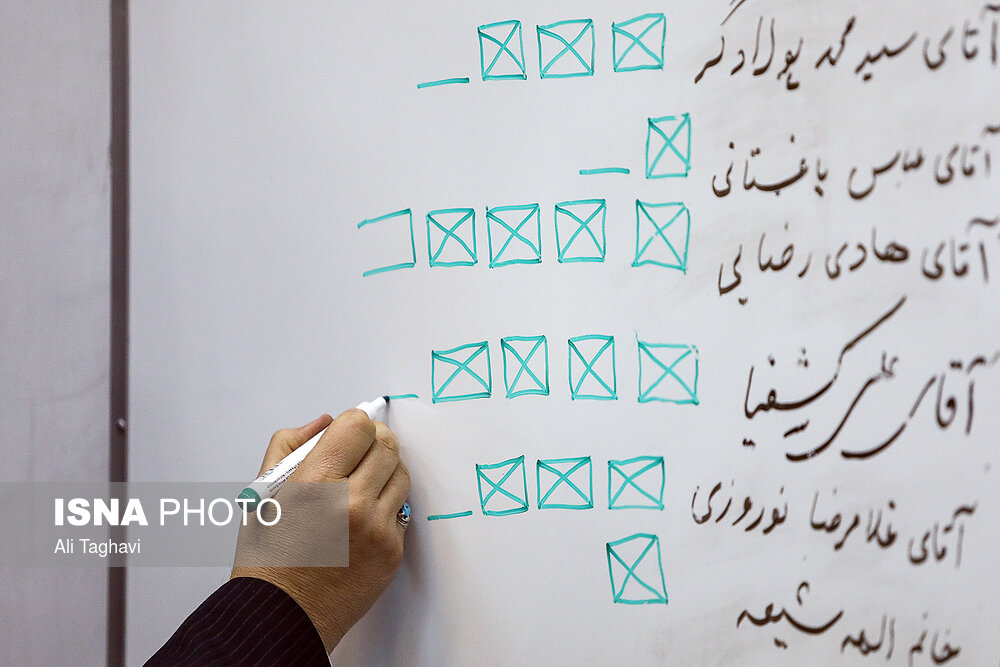 آقای سید محمد پولادگر
آقای عباس باغستانی
آقای هادی رضایی
آقای علی کیشفیا
آقای غلامرضا نوروزی
خانم الهه شیعه
ISNA PHOTO
Ali Taghavi